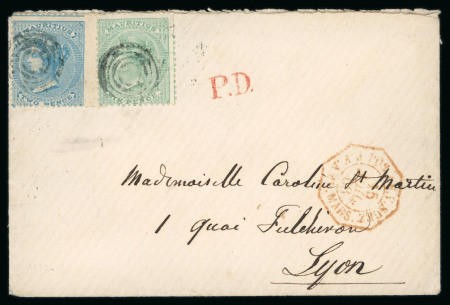 MAURITIUS
TWO PENCE
MAURITIUS
PENCE
P.D.
Mademoiselle Caroline St Martin
1 quai Fulchiron
Lyon